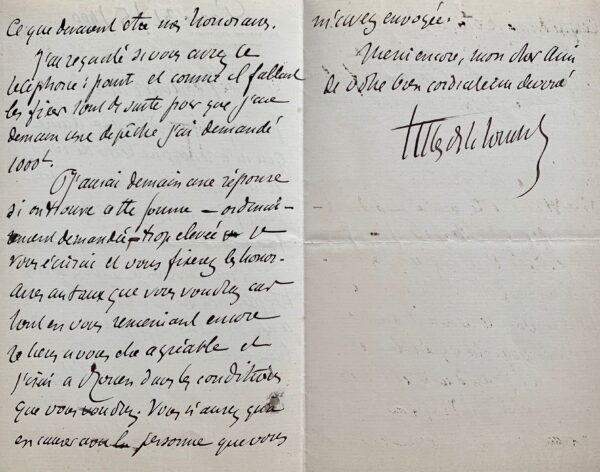 Ce que devraient être nos honoraires.
J'ai regardé si vous aviez le
téléphone: point et comme il fallait
les fixer tout de suite pour que j'aie
demain une dépêche j'ai demandé
1000f.
J'aurai demain une réponse
si on trouve cette somme – ordinai-
rement demandée – trop élevée je
vous écrirai et vous fixerez les honor-
aires au taux que vous voudrez car
tout en vous remerciant encore
je tiens à vous être agréable et
j'irai à Rouen dans les conditions
que vous voudrez. Vous n'aurez qu'à
en causer avec la personne que vous
m'avez envoyée.
Merci encore, mon cher ami
de votre bien cordialement dévoué